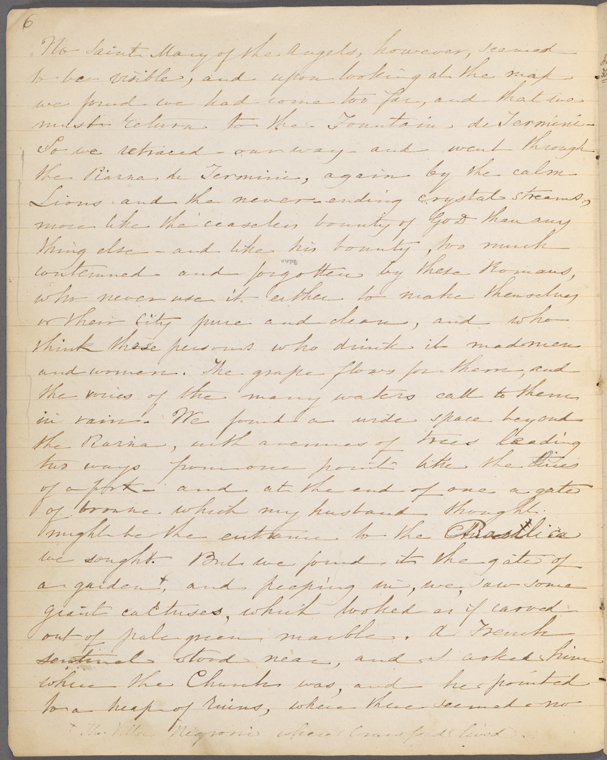 6
No Saint Mary of the Angels, however, seemed
to be visible, and upon looking at the map
we found we had come too far, and that we
must return to the Fountain de Termini
So we retraced our way and went through
the Piazza de Termini, again by the calm
Lions and the never-ending crystal streams,
more like the ceaseless bounty of God than any
thing else - and like his bounty, too much
contemned and forgotten by these Romans,
who never use it either to make themselves
or their city pure and clean, and who
think these persons who drink it madmen
and women. The grape flows for them, and
the voices of the many waters call to them
in vain. We found a wide space beyond
the Piazza, with avenues of trees leading
two ways from one point like the tines
of a fork - and at the end of one a gate
of bronze which my husband thought
might be the entrance to the Basilica
we sought. But we found it the gate of
a garden+, and peeping in, we saw some
giant cactuses, which looked as if carved
out of pale green marble. A French
sentinel stood near, and I asked him
where the Church was, and he pointed
to a heap of ruins, where there seemed no
+ The Villa Negroni where Crawford lived.